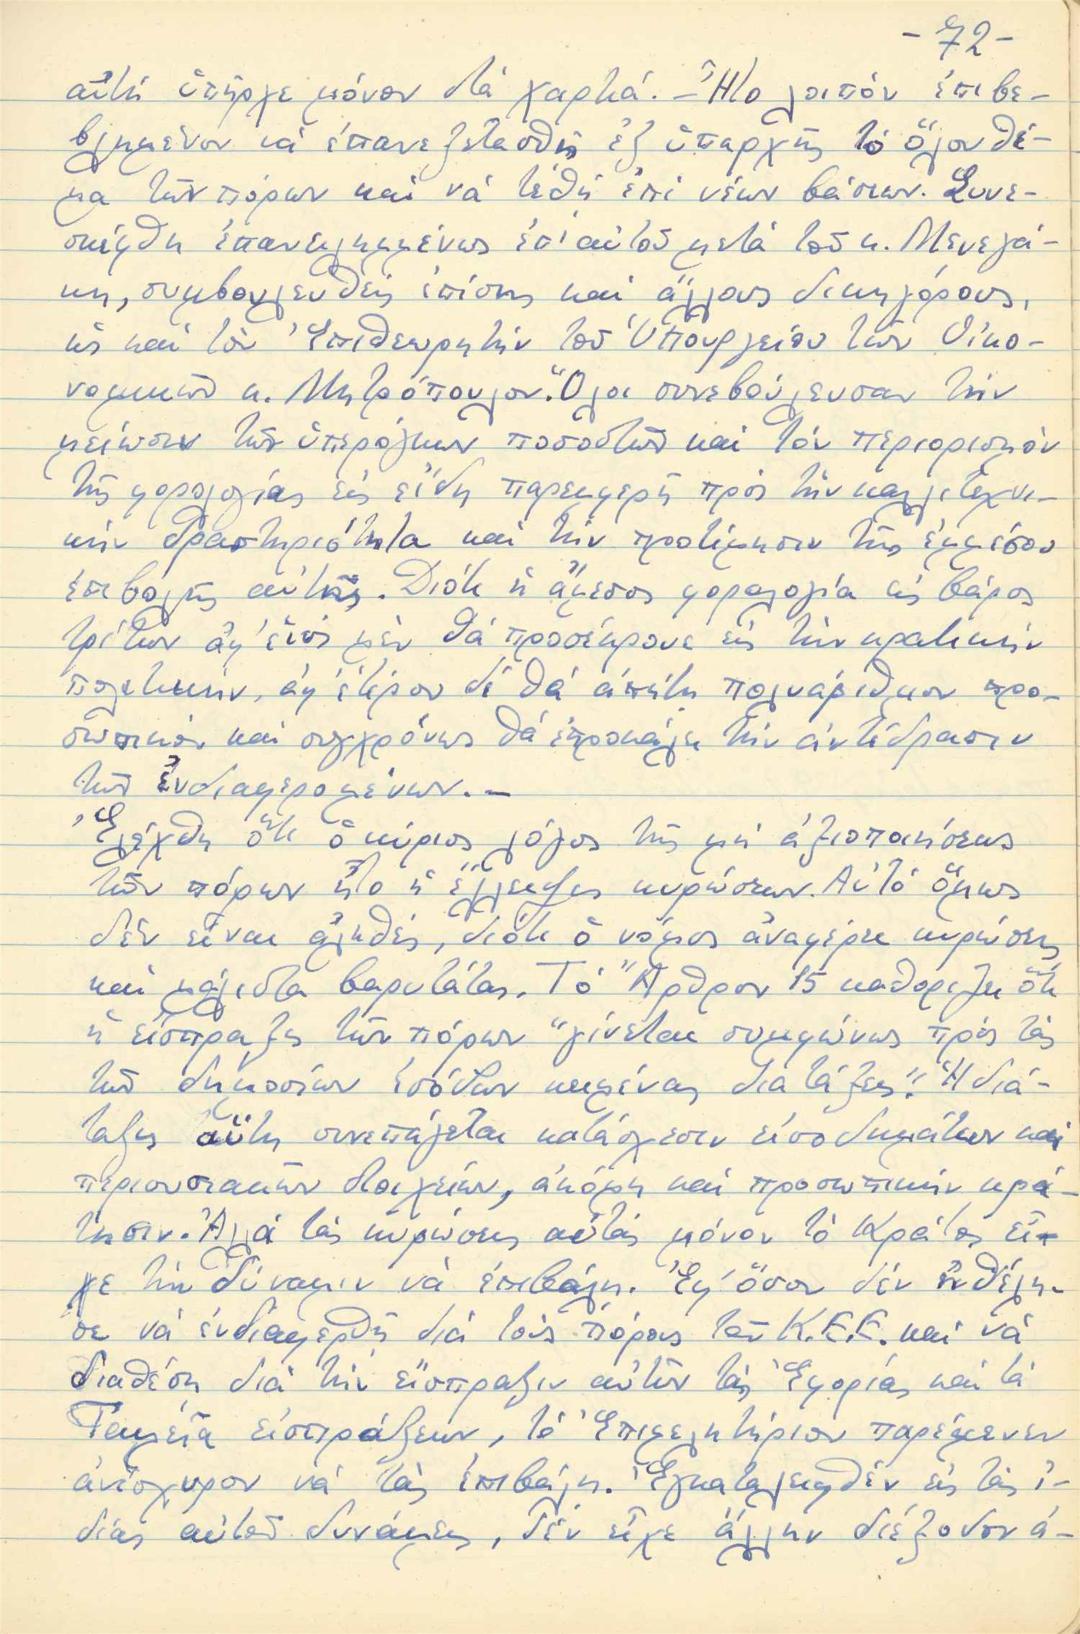 -72-
αὐτή ὑπῆρχε μόνον στά χαρτιά. – Ἦτο λοιπόν ἐπιβε-
βλημένον νά ἐπανεξετασθῇ ἐξ ὑπαρχῆς τό ὅλον θέ-
μα τῶν πόρων καί νά τεθῇ ἐπί νέων βάσεων. Συνε-
σκέφθη ἐπανειλημμένως ἐπ' αὐτοῦ μετά τοῦ κ. Μενελά-
κη, συμβουλευθείς ἐπίσης καί ἄλλους δικηγόρους,
ὡς καί τόν Ἐπιθεωρητήν τοῦ Ὑπουργείου τῶν Οἰκο-
νομικῶν κ. Μητρόπουλον. Ὅλοι συνεβούλευσαν τήν
μείωσιν τῶν ὑπερόγκων ποσοστῶν καί τόν περιορισμόν
τῆς φορολογίας εἰς εἴδη παρεμφερῆ πρός τήν καλλιτεχνι-
κήν δραστηριότητα καί τήν προτίμησιν τῆς ἐμμέσου
ἐπιβολῆς αὐτῆς. Διότι ἡ ἄμεσος φορολογία εἰς βάρος
τρίτων ἀφ' ἑνός μέν θά προσέκρουε εἰς τήν κρατικήν
πολιτικήν, ἀφ' ἑτέρου δέ θά ἀπῄτει πολυάριθμον προ-
σωπικόν καί συγχρόνως θά ἐπροκάλει τήν ἀντίδρασιν
τῶν ἐνδιαφερομένων. –
Ἐλέχθη ὅτι ὁ κύριος λόγος τῆς μή ἀξιοποιήσεως
τῶν πόρων ἦτο ἡ ἔλλειψις κυρώσεων. Αὐτό ὅμως
δέν εἶναι ἀληθές, διότι ὁ νόμος ἀναφέρει κυρώσεις
καί μάλιστα βαρυτάτας. Τό Ἄρθρον 15 καθορίζει ὅτι
ἡ εἴσπραξις τῶν πόρων "γίνεται συμφώνως πρός τάς
τῶν δημοσίων ἐσόδων κειμένας διατάξεις". Ἡ διά-
ταξις αὕτη συνεπάγεται κατάσχεσιν εἰσοδημάτων καί
περιουσιακῶν στοιχείων, ἀκόμη καί προσωπικήν κρά-
τησιν. Ἀλλά τάς κυρώσεις αὐτάς μόνον τό Κράτος εἶ-
χε τήν δύναμιν νά ἐπιβάλῃ. Ἐφ' ὅσον δέν ἠθέλη-
σε νά ἐνδιαφερθῇ διά τούς πόρους τοῦ Κ.Ε.Ε. καί νά
διαθέσῃ διά τήν εἴσπραξιν αὐτῶν τάς Ἐφορίας καί τά
Ταμεῖα εἰσπράξεων, τό Ἐπιμελητήριον παρέμενεν
ἀνίσχυρον νά τάς ἐπιβάλῃ. Ἐγκαταλειφθέν εἰς τάς ἰ-
δίας αὐτοῦ δυνάμεις, δέν εἶχε ἄλλην διέξοδον ἀ-